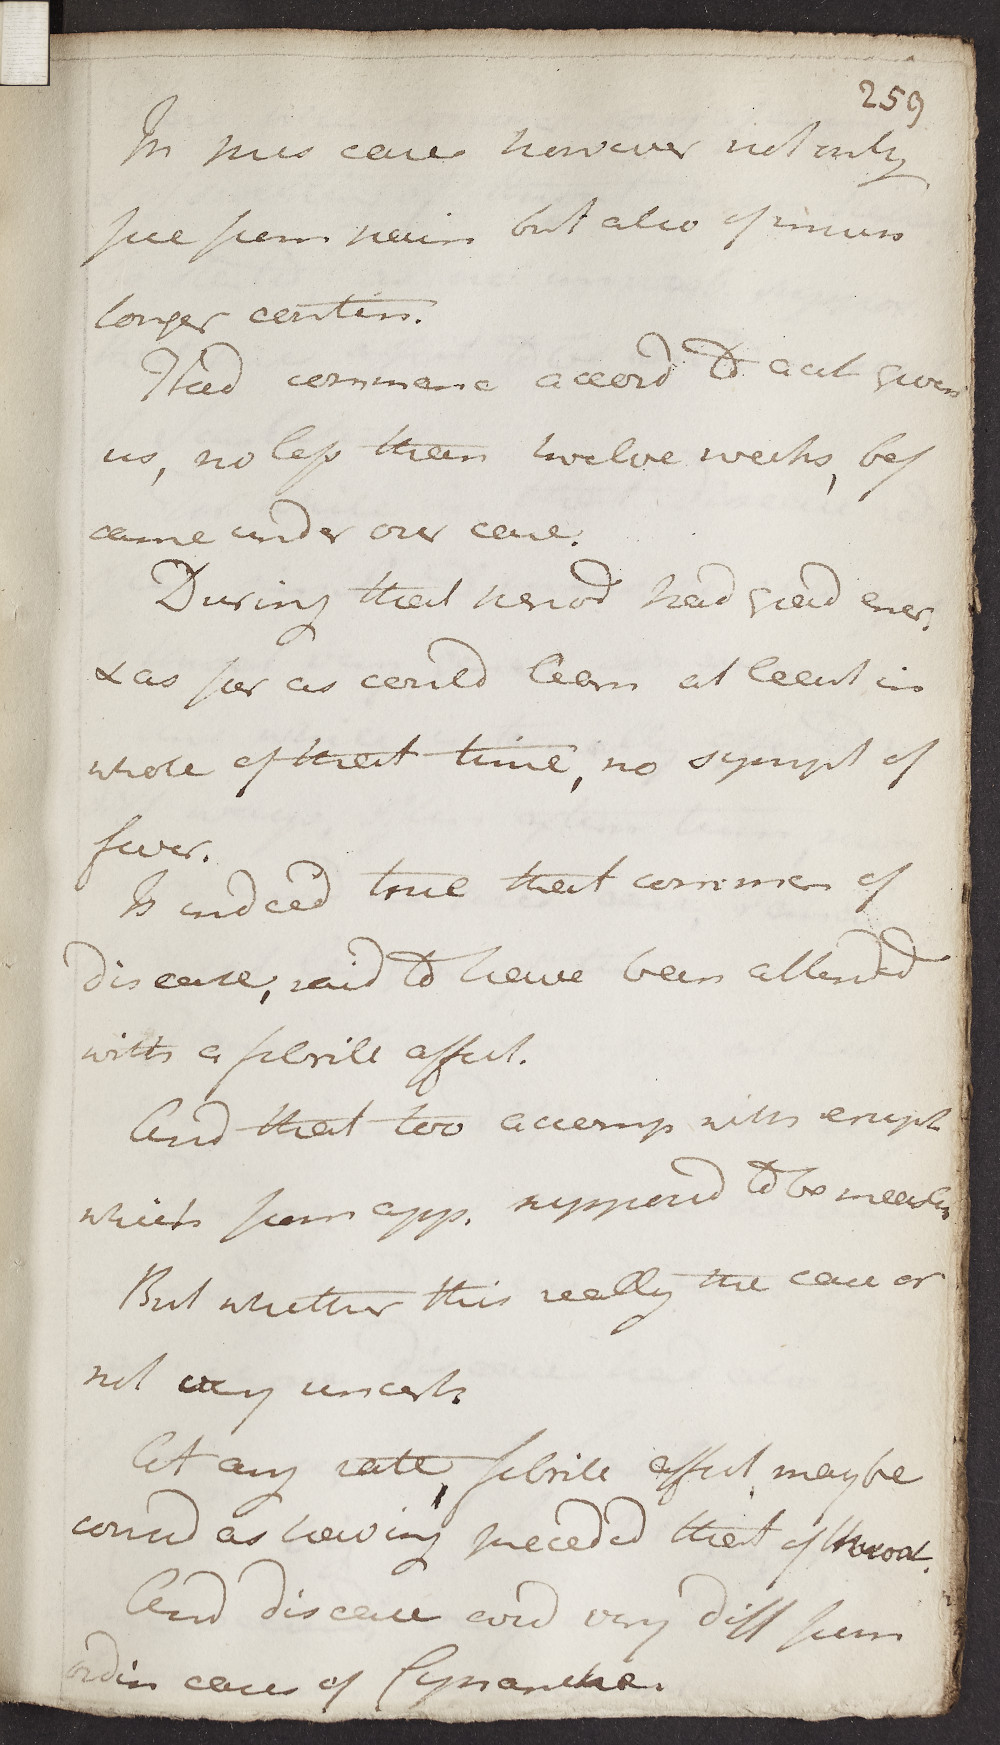 259
In this case however not only
free from pain but also of much
longer contin.
Had commenc accord to acct given
us, no less than twelve weeks, bef
came under our care.
During that period had great
& as far as could learn at least in
whole of that time, no sympt of
fever.
Is indeed true that commen of
disease, said to have been attended
with a febrile affect.
And that too accomp with erupt
which from app. supposed to be measles
But whether this really the case or
not very uncert.
At any rate, febrile affect may be
consid as having preceded that of throat.
And disease cord very diff from
ordin cases of Cynanche.